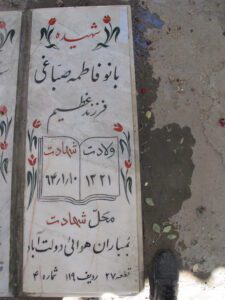 شهیده
بانو فاطمه صباغی
فرزند عظیم
ولادت شهادت
۱۳۲۱ ۶۴/۱/۱۰
محل شهادت
بمباران هوائی دولت آباد
قطعه ۲۷ ردیف ۱۱۹ شماره ۴